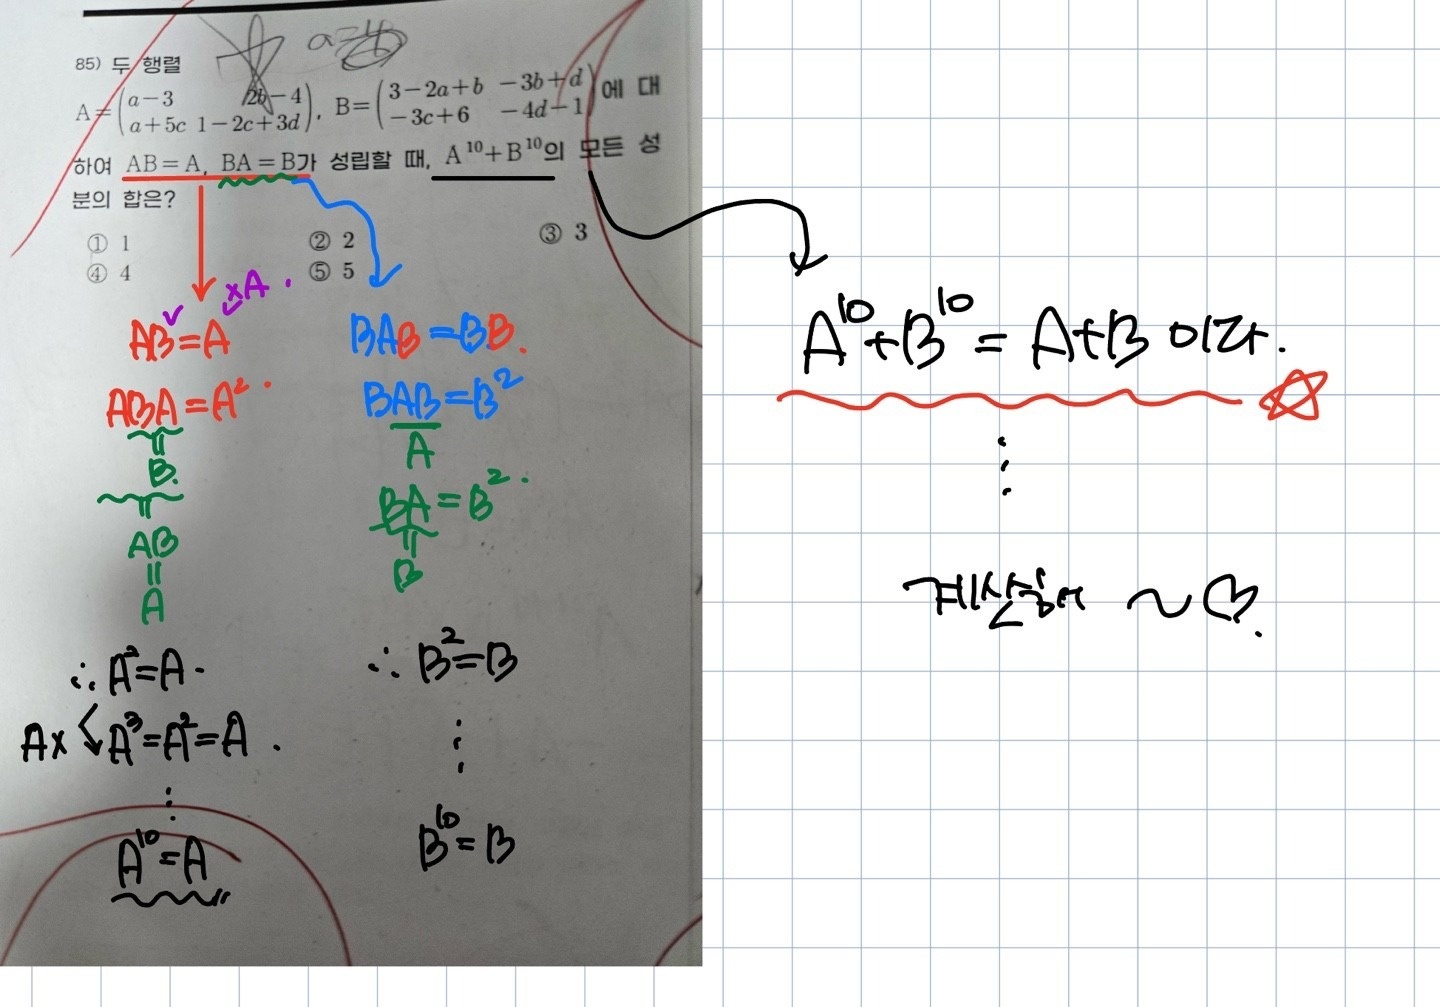 a=4
85) 두 행렬
A=(a-3 2b-4
a+5c 1-2c+3d), B=(3-2a+b -3b+d
-3c+6 -4d-1)에 대
하여 AB=A, BA=B가 성립할 때, A¹⁰+B¹⁰의 모든 성
분의 합은?
① 1 ② 2 ③ 3
④ 4 ⑤ 5
×A.
AB=A
ABA=A².
B.
AB
A
∴ A²=A.
A× A³=A²=A.
A¹⁰=A
BAB=BB.
BAB=B²
A
BA=B².
B
∴ B²=B
B¹⁰=B
A¹⁰+B¹⁰ = A+B 이라.
계산해서 ~♡.